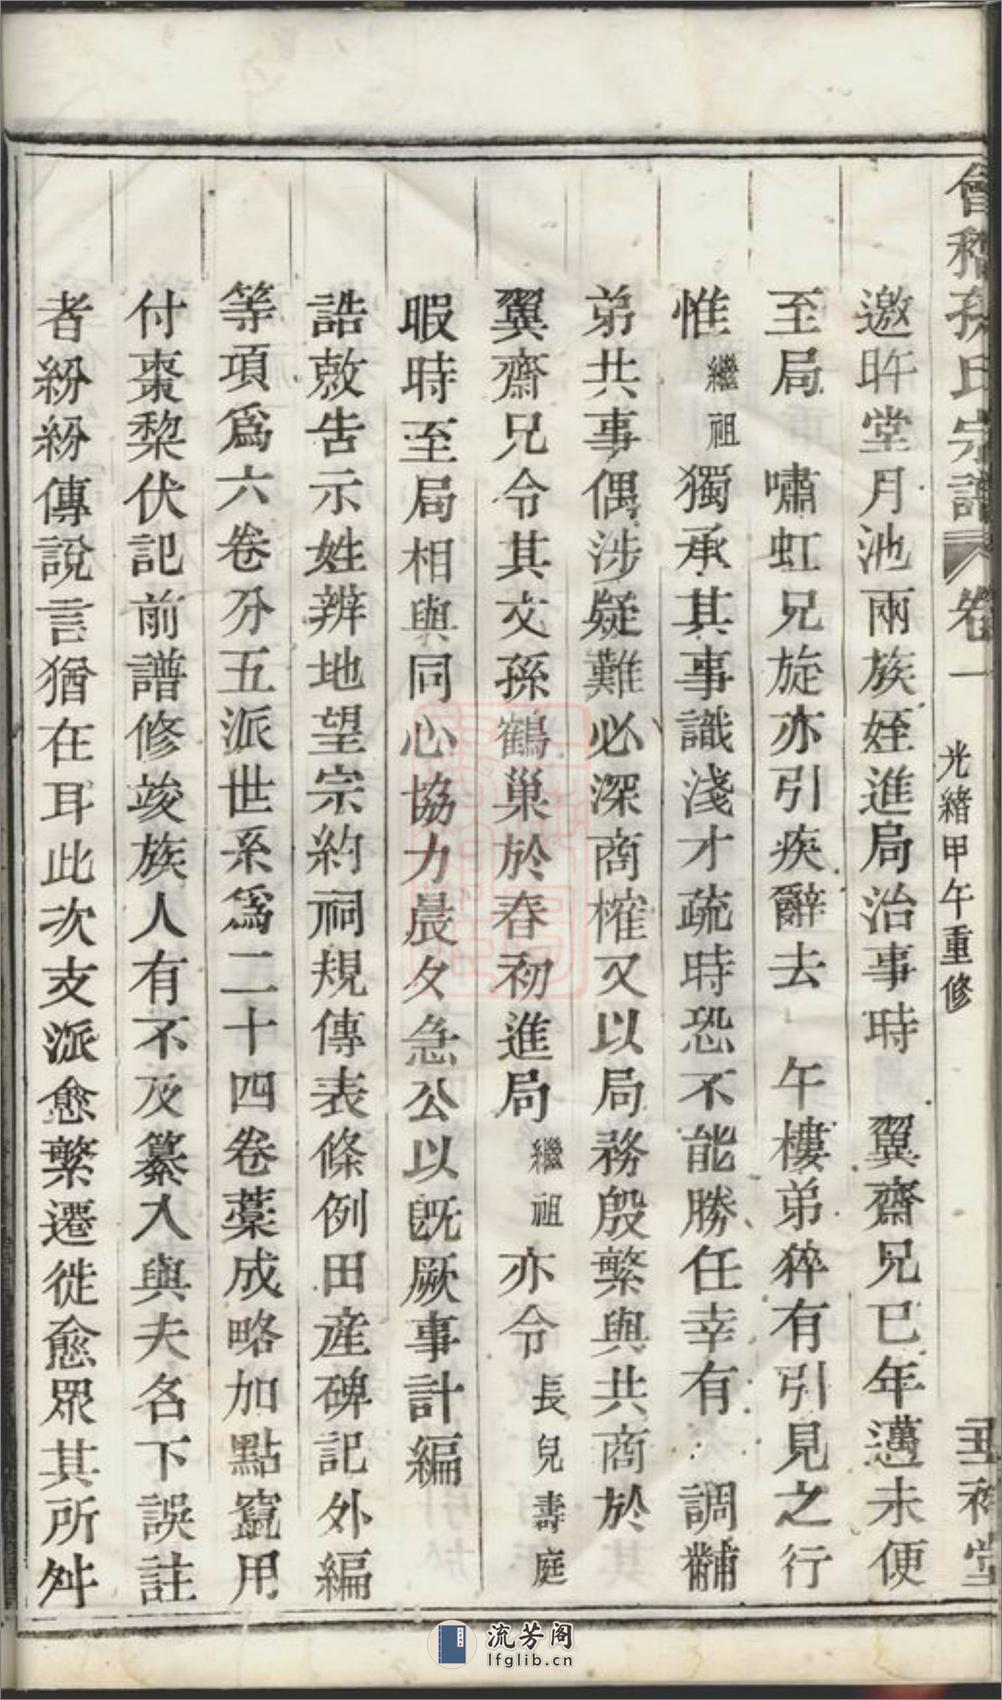 會稽孫氏宗譜 卷一 光緒甲午重修
邀昨堂月池兩族姪進局治事時 翼齋兄已年邁未便
至局 嘯虹兄旋亦引疾辭去 午樓弟猝有引見之行
惟繼祖獨承其事識淺才疏時恐不能勝任幸有 調黼
弟共事偶涉疑難必深商榷又以局務殷繁與共商於
翼齋兄令其文孫鶴巢於春初進局繼祖亦令長兒壽庭
暇時至局相與同心協力晨夕急公以既厥事計編
誥敕告示姓辨地望宗約祠規傳表條例田産碑記外編
等項爲六卷分五派世系爲二十四卷藁成略加點竄用
付棗棃伏記前譜修竣族人有不及纂入與夫名下誤註
者紛紛傳說言猶在耳此次支派愈繁遷徙愈眾其所舛
流芳阁
lfglib.cn